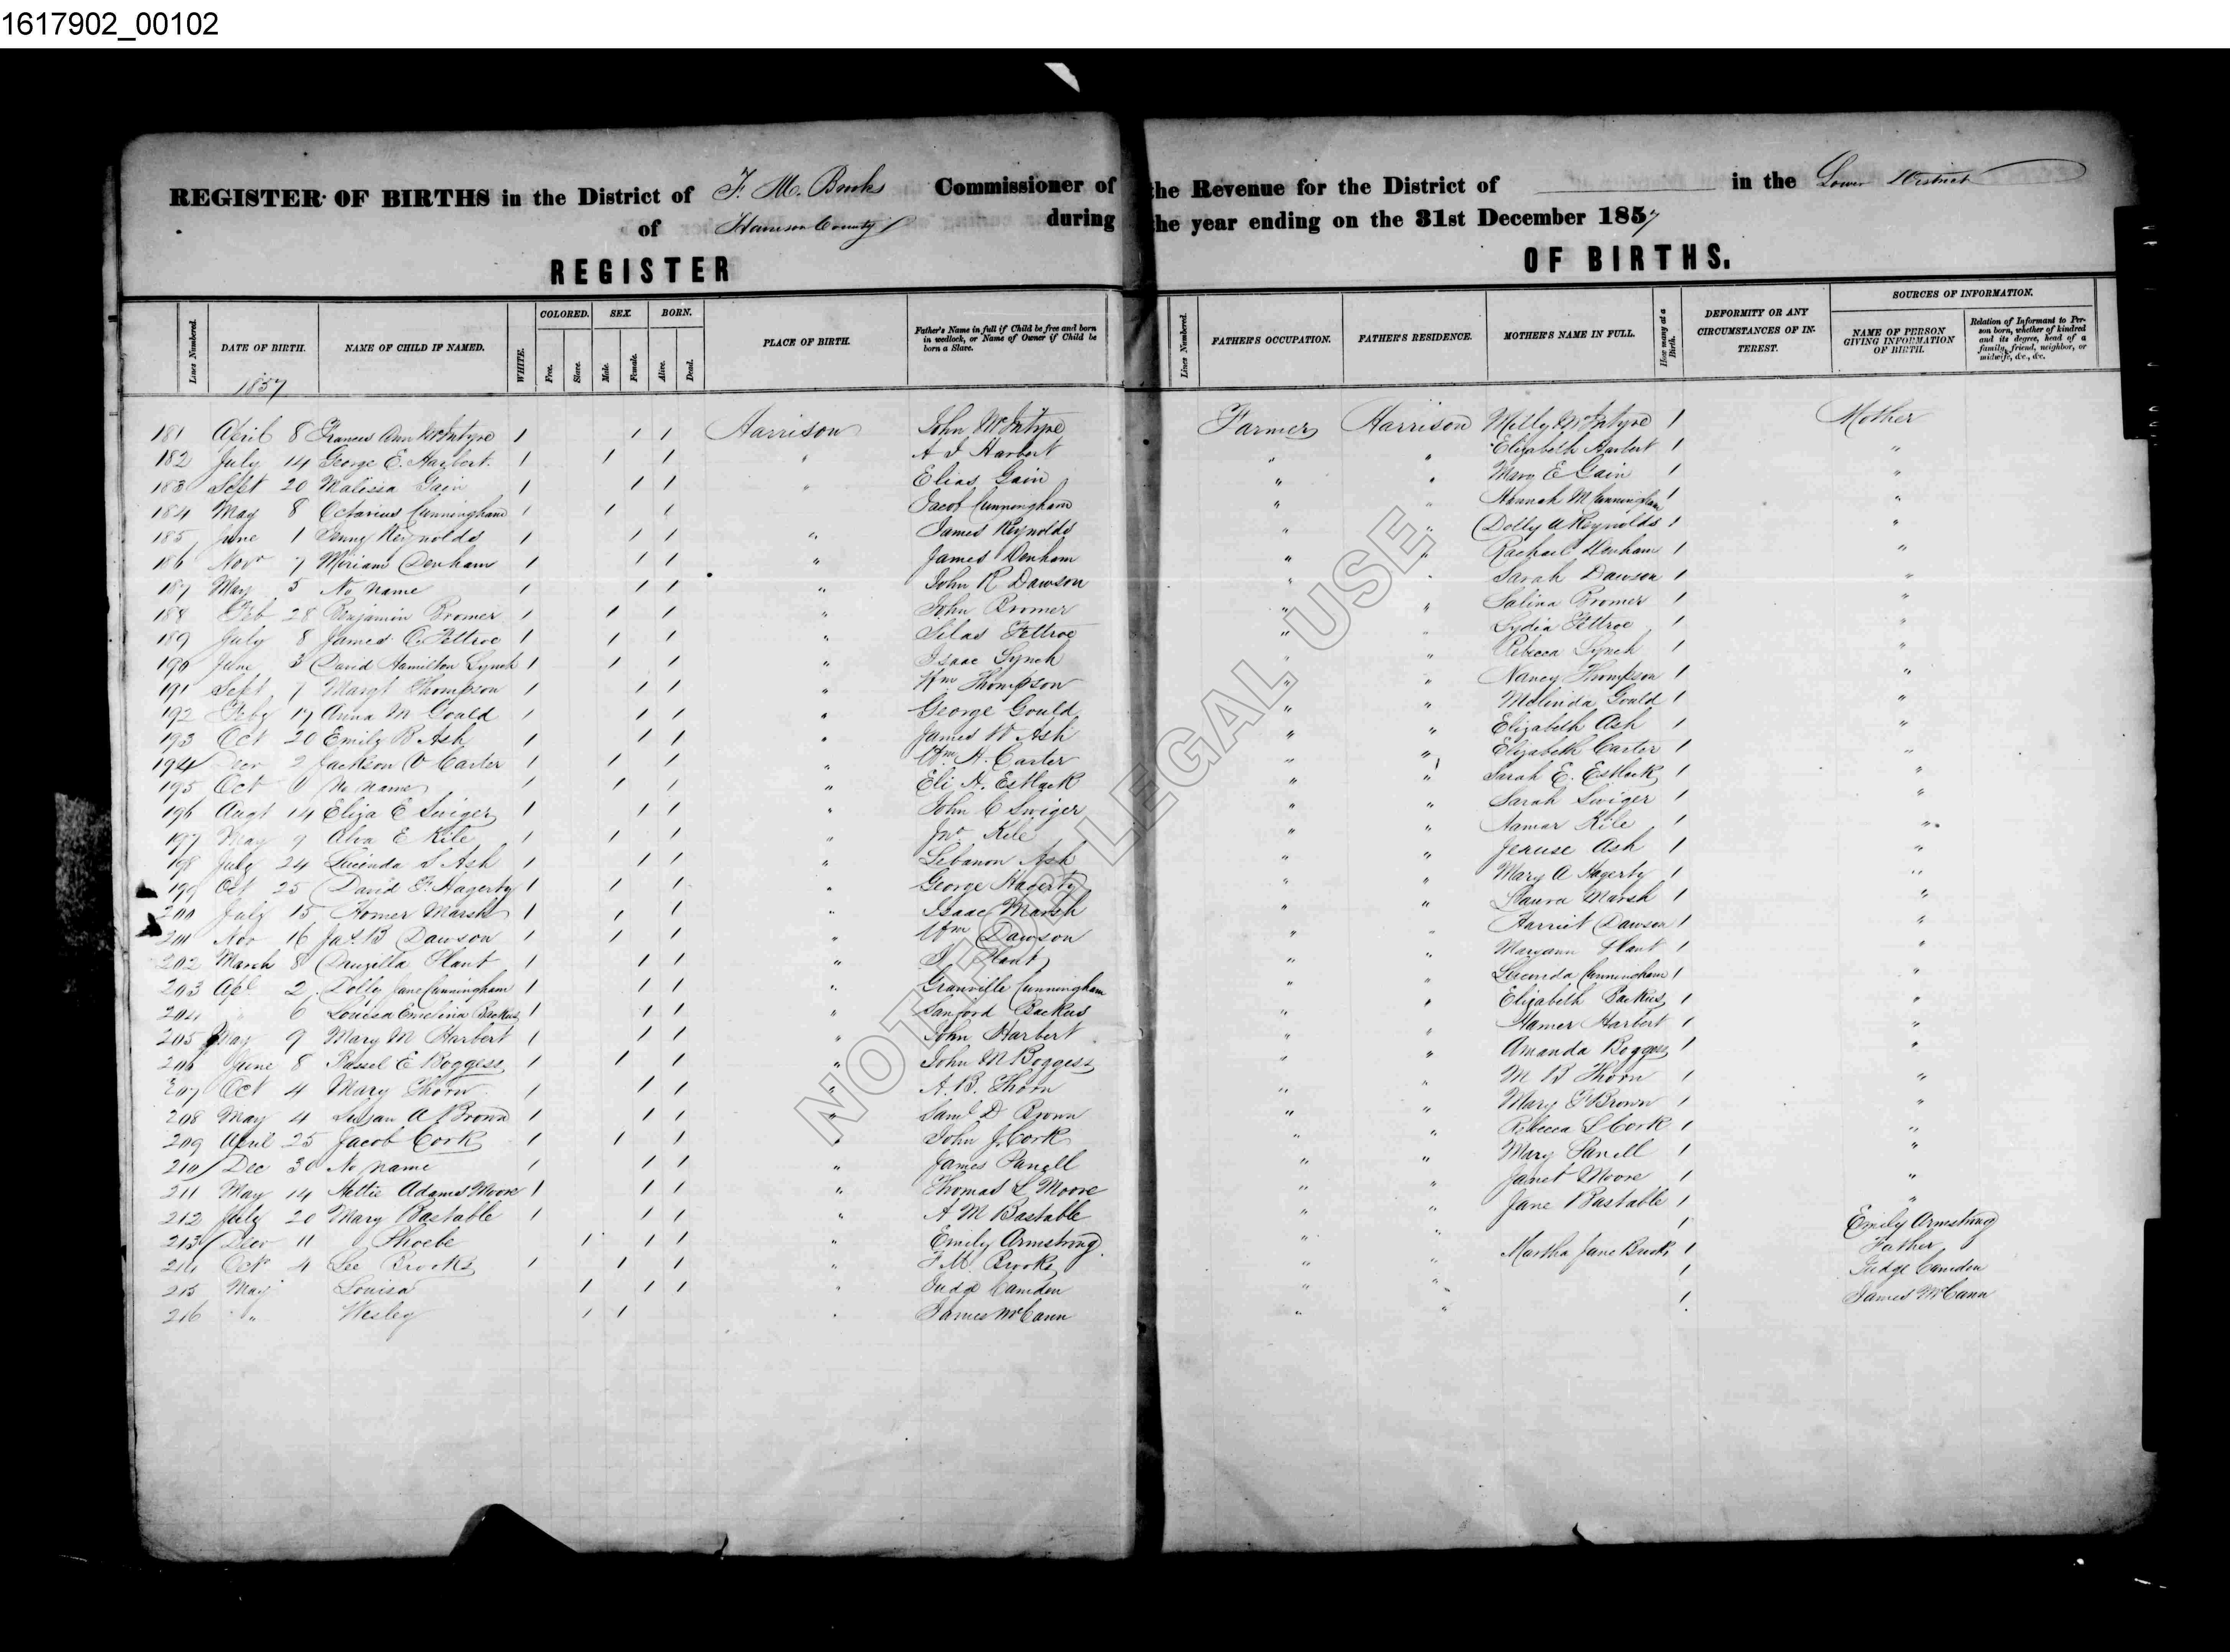 1617902_00102
REGISTER OF BIRTHS in the District of F. M. Brooks Commissioner of the Revenue for the District of in the Lower District
of Harrison County during the year ending on the 31st December 1857
REGISTER OF BIRTHS.
Lines Numbered. DATE OF BIRTH. NAME OF CHILD IF NAMED. WHITE. COLORED. Free. Slave. SEX. Male. Female. BORN. Alive. Dead. PLACE OF BIRTH. Father's Name in full if Child be free and born in wedlock, or Name of Owner if Child be born a Slave. Lines Numbered. FATHER'S OCCUPATION. FATHER'S RESIDENCE. MOTHER'S NAME IN FULL. How many at a Birth. DEFORMITY OR ANY CIRCUMSTANCES OF INTEREST. SOURCES OF INFORMATION. NAME OF PERSON GIVING INFORMATION OF BIRTH. Relation of Informant to Person born, whether of kindred and its degree, head of a family, friend, neighbor, or midwife, &c., &c.
1857
181 April 8 Frances Ann McIntyre 1 1 1 Harrison John McIntyre Farmer Harrison Milly McIntyre 1 Mother
182 July 14 George E. Harbert 1 1 1 " A I Harbert " " Elizabeth Harbert 1 "
183 Sept 20 Malissa Gain 1 1 1 " Elias Gain " " Mary E Gain 1 "
184 May 8 Octavius Cunningham 1 1 1 Jacob Cunningham " " Hannah M Cunningham 1 "
185 June 1 Reynolds 1 1 1 " James Reynolds " " Dolly A Reynolds 1 "
186 Novr 7 Miriam Denham 1 1 1 " James Denham " " Rachael Denham 1 "
187 May 5 No Name 1 1 1 " John R Dawson " " Sarah Dawson 1 "
188 Feb 28 Benjamin Bromer 1 1 1 " John Bromer " " Salina Bromer 1 "
189 July 8 James O. Fettroe 1 1 1 " Silas Fettroe " " Lydia Fettroe 1 "
190 June 3 David Hamilton Lynch 1 1 1 " Isaac Lynch " " Rebecca Lynch 1 "
191 Sept 7 Margt Thompson 1 1 1 " Wm Thompson " " Nancy Thompson 1 "
192 Feby 17 Anna M Goald 1 1 1 " George Gould " " Malinda Gould 1 "
193 Oct 20 Emily B Ash 1 1 1 " James W Ash " " Elizabeth Ash 1 "
194 Decr 2 Jackson V Carter 1 1 1 " Wm. H. Carter " " Elizabeth Carter 1 "
195 Oct No Name 1 1 1 " Eli A. Estlack " " Sarah E. Estlack 1 "
196 Augt 14 Eliza E Swiger 1 1 1 " John C Swiger " " Sarah Swiger 1 "
197 May 9 Alva E Kile 1 1 1 " Jno Kile " " Hamar Kile 1 "
198 July 24 Lucinda S Ash 1 1 1 " Lebanon Ash " " Jeruse Ash 1 "
199 Oct 25 David F. Hagerty 1 1 1 " George Hagerty " " Mary A Hagerty 1 "
200 July 15 Homer Marsh 1 1 1 " Isaac Marsh " " Laura Marsh 1 "
201 Nov 16 Jas. B Dawson 1 1 1 " Wm Dawson " " Harriet Dawson 1 "
202 March 8 Druzilla Plant 1 1 1 " Plant " " Maryann Plant 1 "
203 Apl 2 Dolly Jane Cunningham 1 1 1 " Granville Cunningham " " Lucinda Cunningham 1 "
204 " 6 Louisa Emelina Backus 1 1 1 " Sanford Backus " " Elizabeth Backus 1 "
205 May 9 Mary M Harbert 1 1 1 " John Harbert " " Hamer Harbert 1 "
206 June 8 Russel E Boggess 1 1 1 " John M Boggess " " Amanda Boggess 1 "
207 Oct 4 Mary Thorn 1 1 1 " A. B. Thorn " " M B Thorn 1 "
208 May 4 Susan A Brown 1 1 1 " Saml D Brown " " Mary F Brown 1 "
209 April 25 Jacob Cork 1 1 1 " John J. Cork " " Rebecca L Cork 1 "
210 Dec 30 No Name 1 1 1 " James Panell " " Mary Panell 1 "
211 May 14 Mettie Adams Moore 1 1 1 " Thomas L Moore " " Janet Moore 1 "
212 July 20 Mary Bastable 1 1 1 " A M Bastable " " Jane Bastable 1 "
213 Decr 11 Phoebe 1 1 1 " Emily Armstrong " " 1 Emily Armstrong
214 Oct 4 Lee Brooks 1 1 1 " F. M. Brooks " " Martha Jane Brooks 1 Father
215 May Louisa 1 1 1 " Judge Camden " " 1 Judge Camden
216 " " Wesley 1 1 " James McCann " " 1 James McCann
NOT FOR LEGAL USE